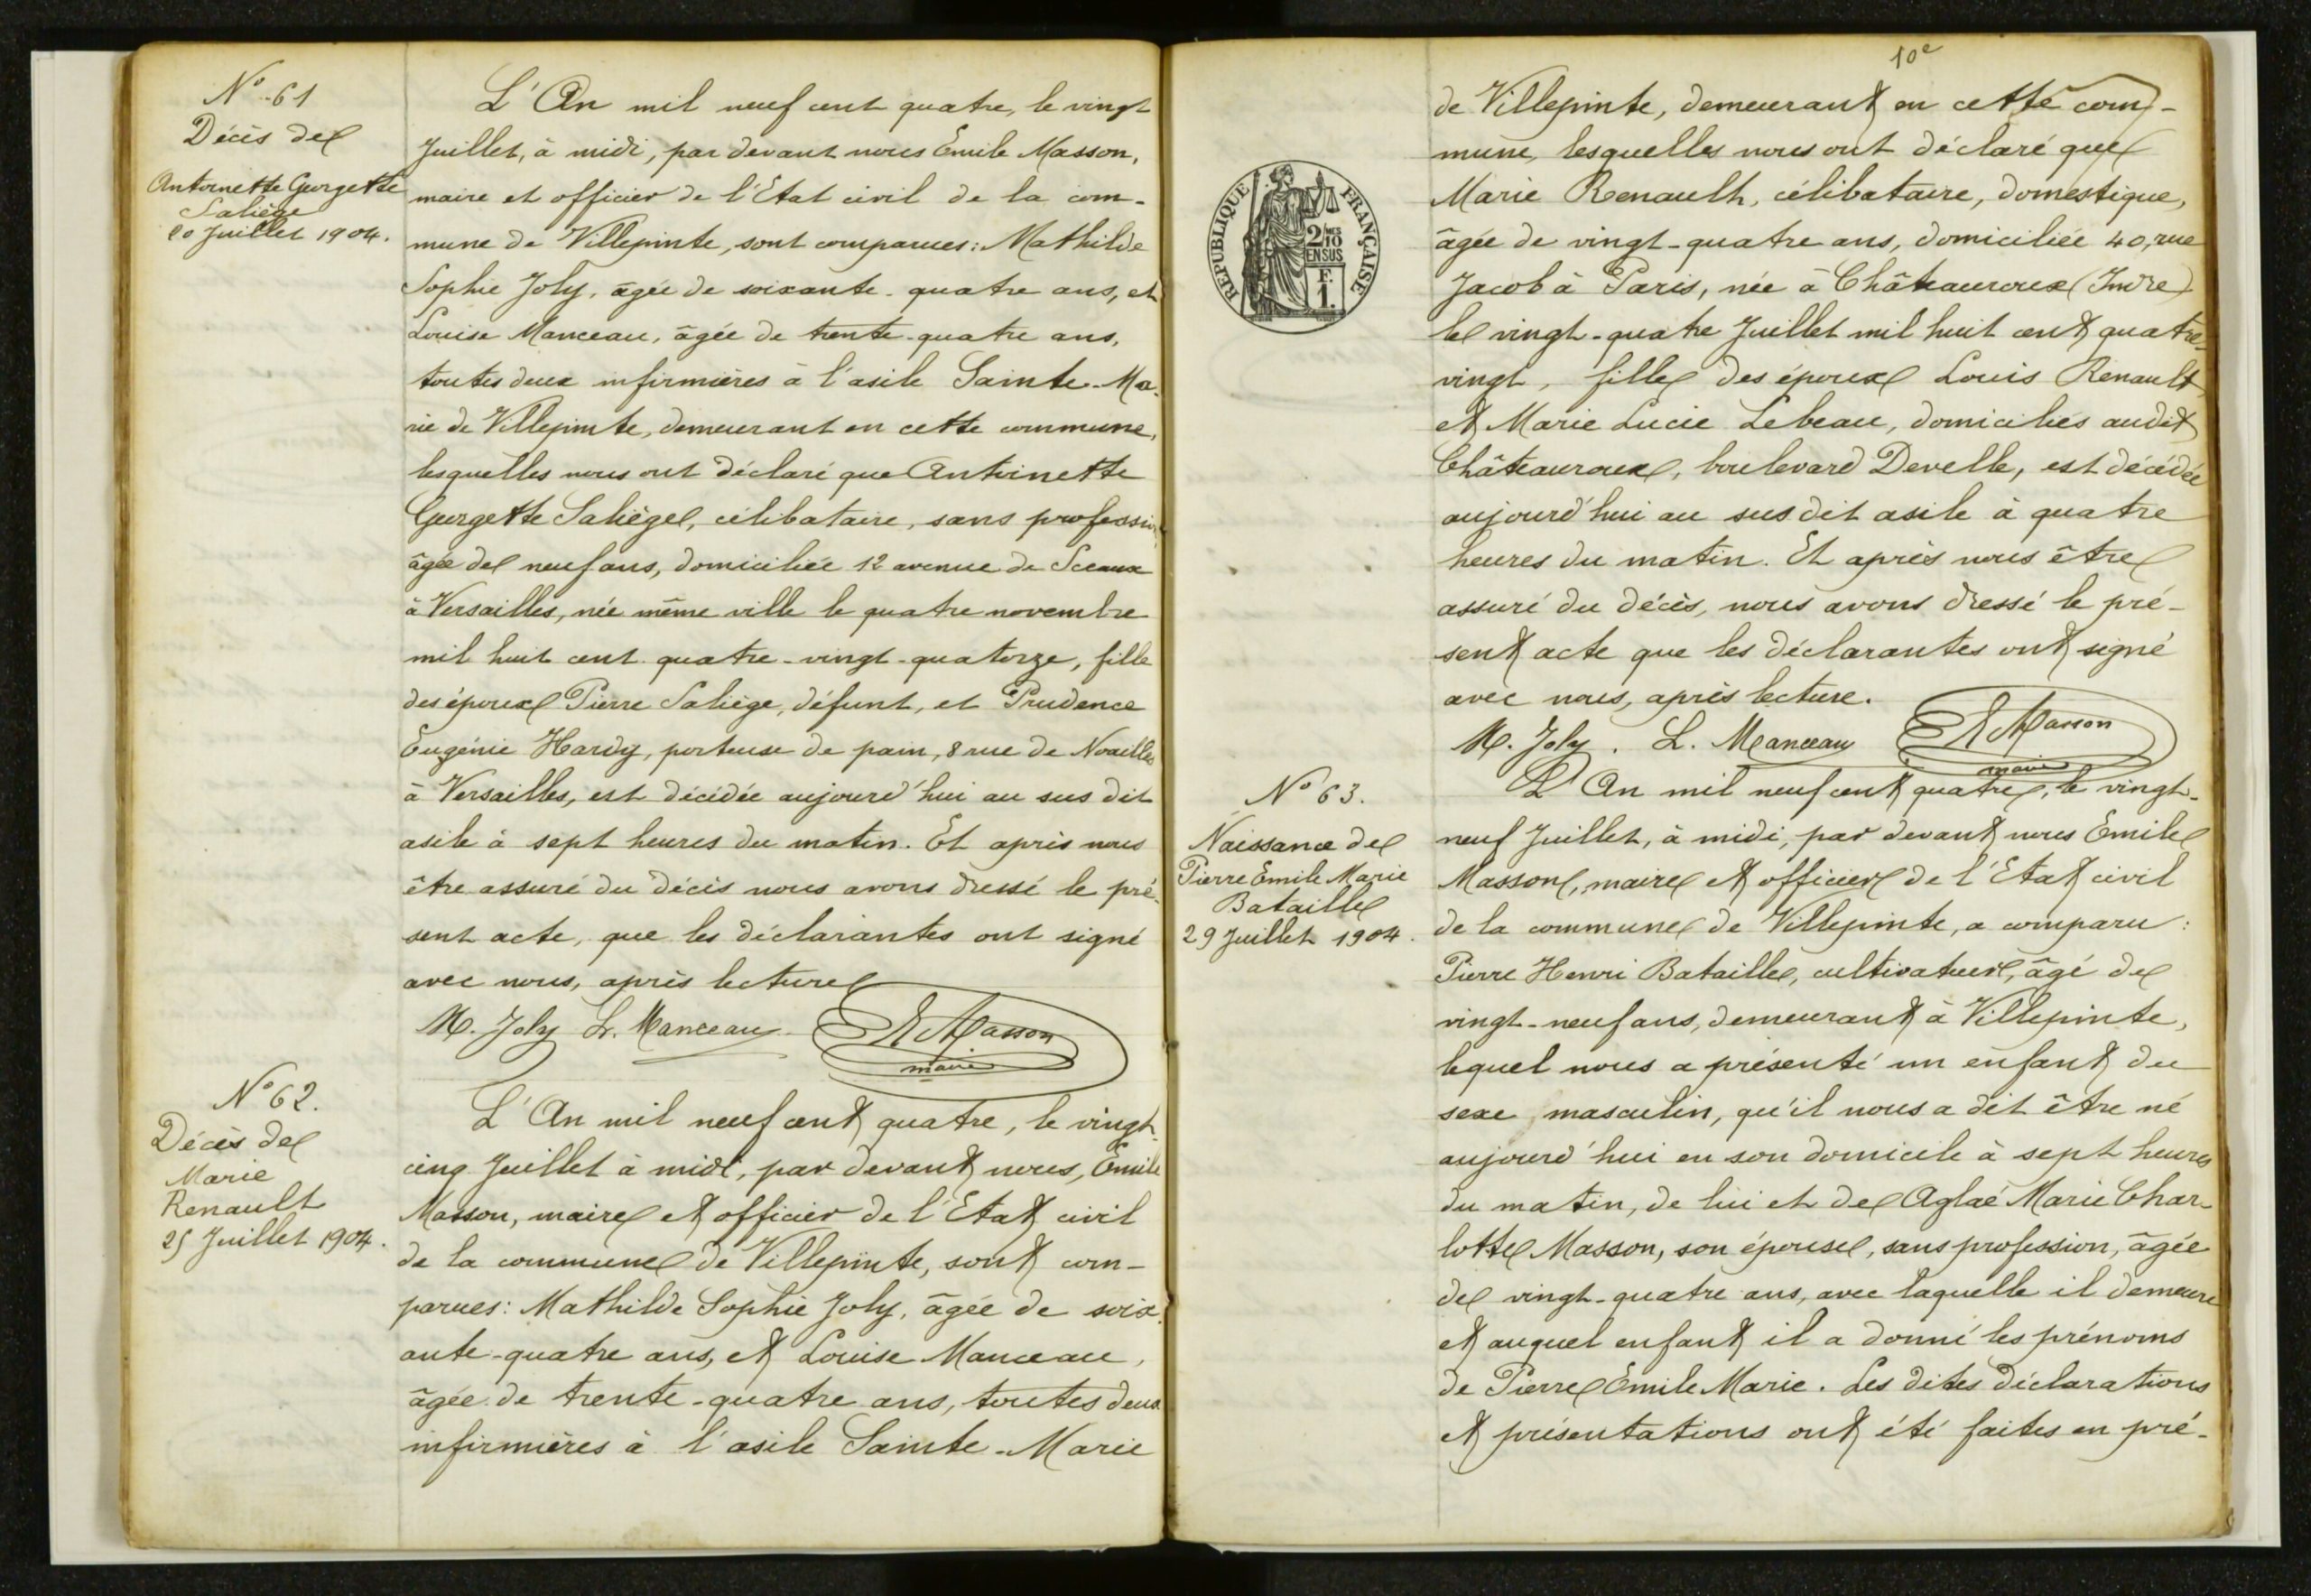 N° 61
Décès de
Antoinette Georgette
Saliège
20 Juillet 1904.
L'An mil neuf cent quatre, le vingt
Juillet, à midi, par devant nous Emile Masson,
maire et officier de l'Etat civil de la com-
mune de Villepinte, sont comparues: Mathilde
Sophie Joly, âgée de soixante-quatre ans, et
Louise Manceau, âgée de trente-quatre ans,
toutes deux infirmières à l'asile Sainte-Ma-
rie de Villepinte, demeurant en cette commune,
lesquelles nous ont déclaré que Antoinette
Georgette Saliège, célibataire, sans profession
âgée de neuf ans, domiciliée 12 avenue de Sceaux
à Versailles, née même ville le quatre novembre
mil huit cent quatre-vingt-quatorze, fille
des époux Pierre Saliège, défunt, et Prudence
Eugénie Hardy, porteuse de pain, 8 rue de Noailles
à Versailles, est décédée aujourd'hui au sus dit
asile à sept heures du matin. Et après nous
être assuré du décès nous avons dressé le pré-
sent acte, que les déclarantes ont signé
avec nous, après lecture
M. Joly L. Manceau E Masson
maire
N° 62.
Décès de
Marie
Renault
25 Juillet 1904.
L'An mil neuf cent quatre, le vingt-
cinq Juillet à midi, par devant nous, Emile
Masson, maire et officier de l'Etat civil
de la commune de Villepinte, sont com-
parues: Mathilde Sophie Joly, âgée de soix-
ante-quatre ans, et Louise Manceau,
âgée de trente-quatre ans, toutes deux
infirmières à l'asile Sainte-Marie
10e
REPUBLIQUE FRANÇAISE
2/10 MES
EN SUS
F.
1.
de Villepinte, demeurant en cette com-
mune, lesquelles nous ont déclaré que
Marie Renault, célibataire, domestique,
âgée de vingt-quatre ans, domiciliée 40, rue
Jacob à Paris, née à Châteauroux (Indre)
le vingt-quatre Juillet mil huit cent quatre-
vingt, fille des époux Louis Renault
et Marie Lucie Lebeau, domiciliés audit
Châteauroux, boulevard Develle, est décédée
aujourd'hui au susdit asile à quatre
heures du matin. Et après nous être
assuré du décès, nous avons dressé le pré-
sent acte que les déclarantes ont signé
avec nous, après lecture.
M. Joly. L. Manceau E Masson
maire
N° 63.
Naissance de
Pierre Emile Marie
Bataille
29 Juillet 1904.
L'An mil neuf cent quatre, le vingt-
neuf Juillet, à midi, par devant nous Emile
Masson, maire et officier de l'Etat civil
de la commune de Villepinte, a comparu:
Pierre Henri Bataille, cultivateur, âgé de
vingt-neuf ans, demeurant à Villepinte,
lequel nous a présenté un enfant du
sexe masculin, qu'il nous a dit être né
aujourd'hui en son domicile à sept heures
du matin, de lui et de Aglaé Marie Char-
lotte Masson, son épouse, sans profession, âgée
de vingt-quatre ans, avec laquelle il demeure
et auquel enfant il a donné les prénoms
de Pierre Emile Marie. Les dites déclarations
et présentations ont été faites en pré-